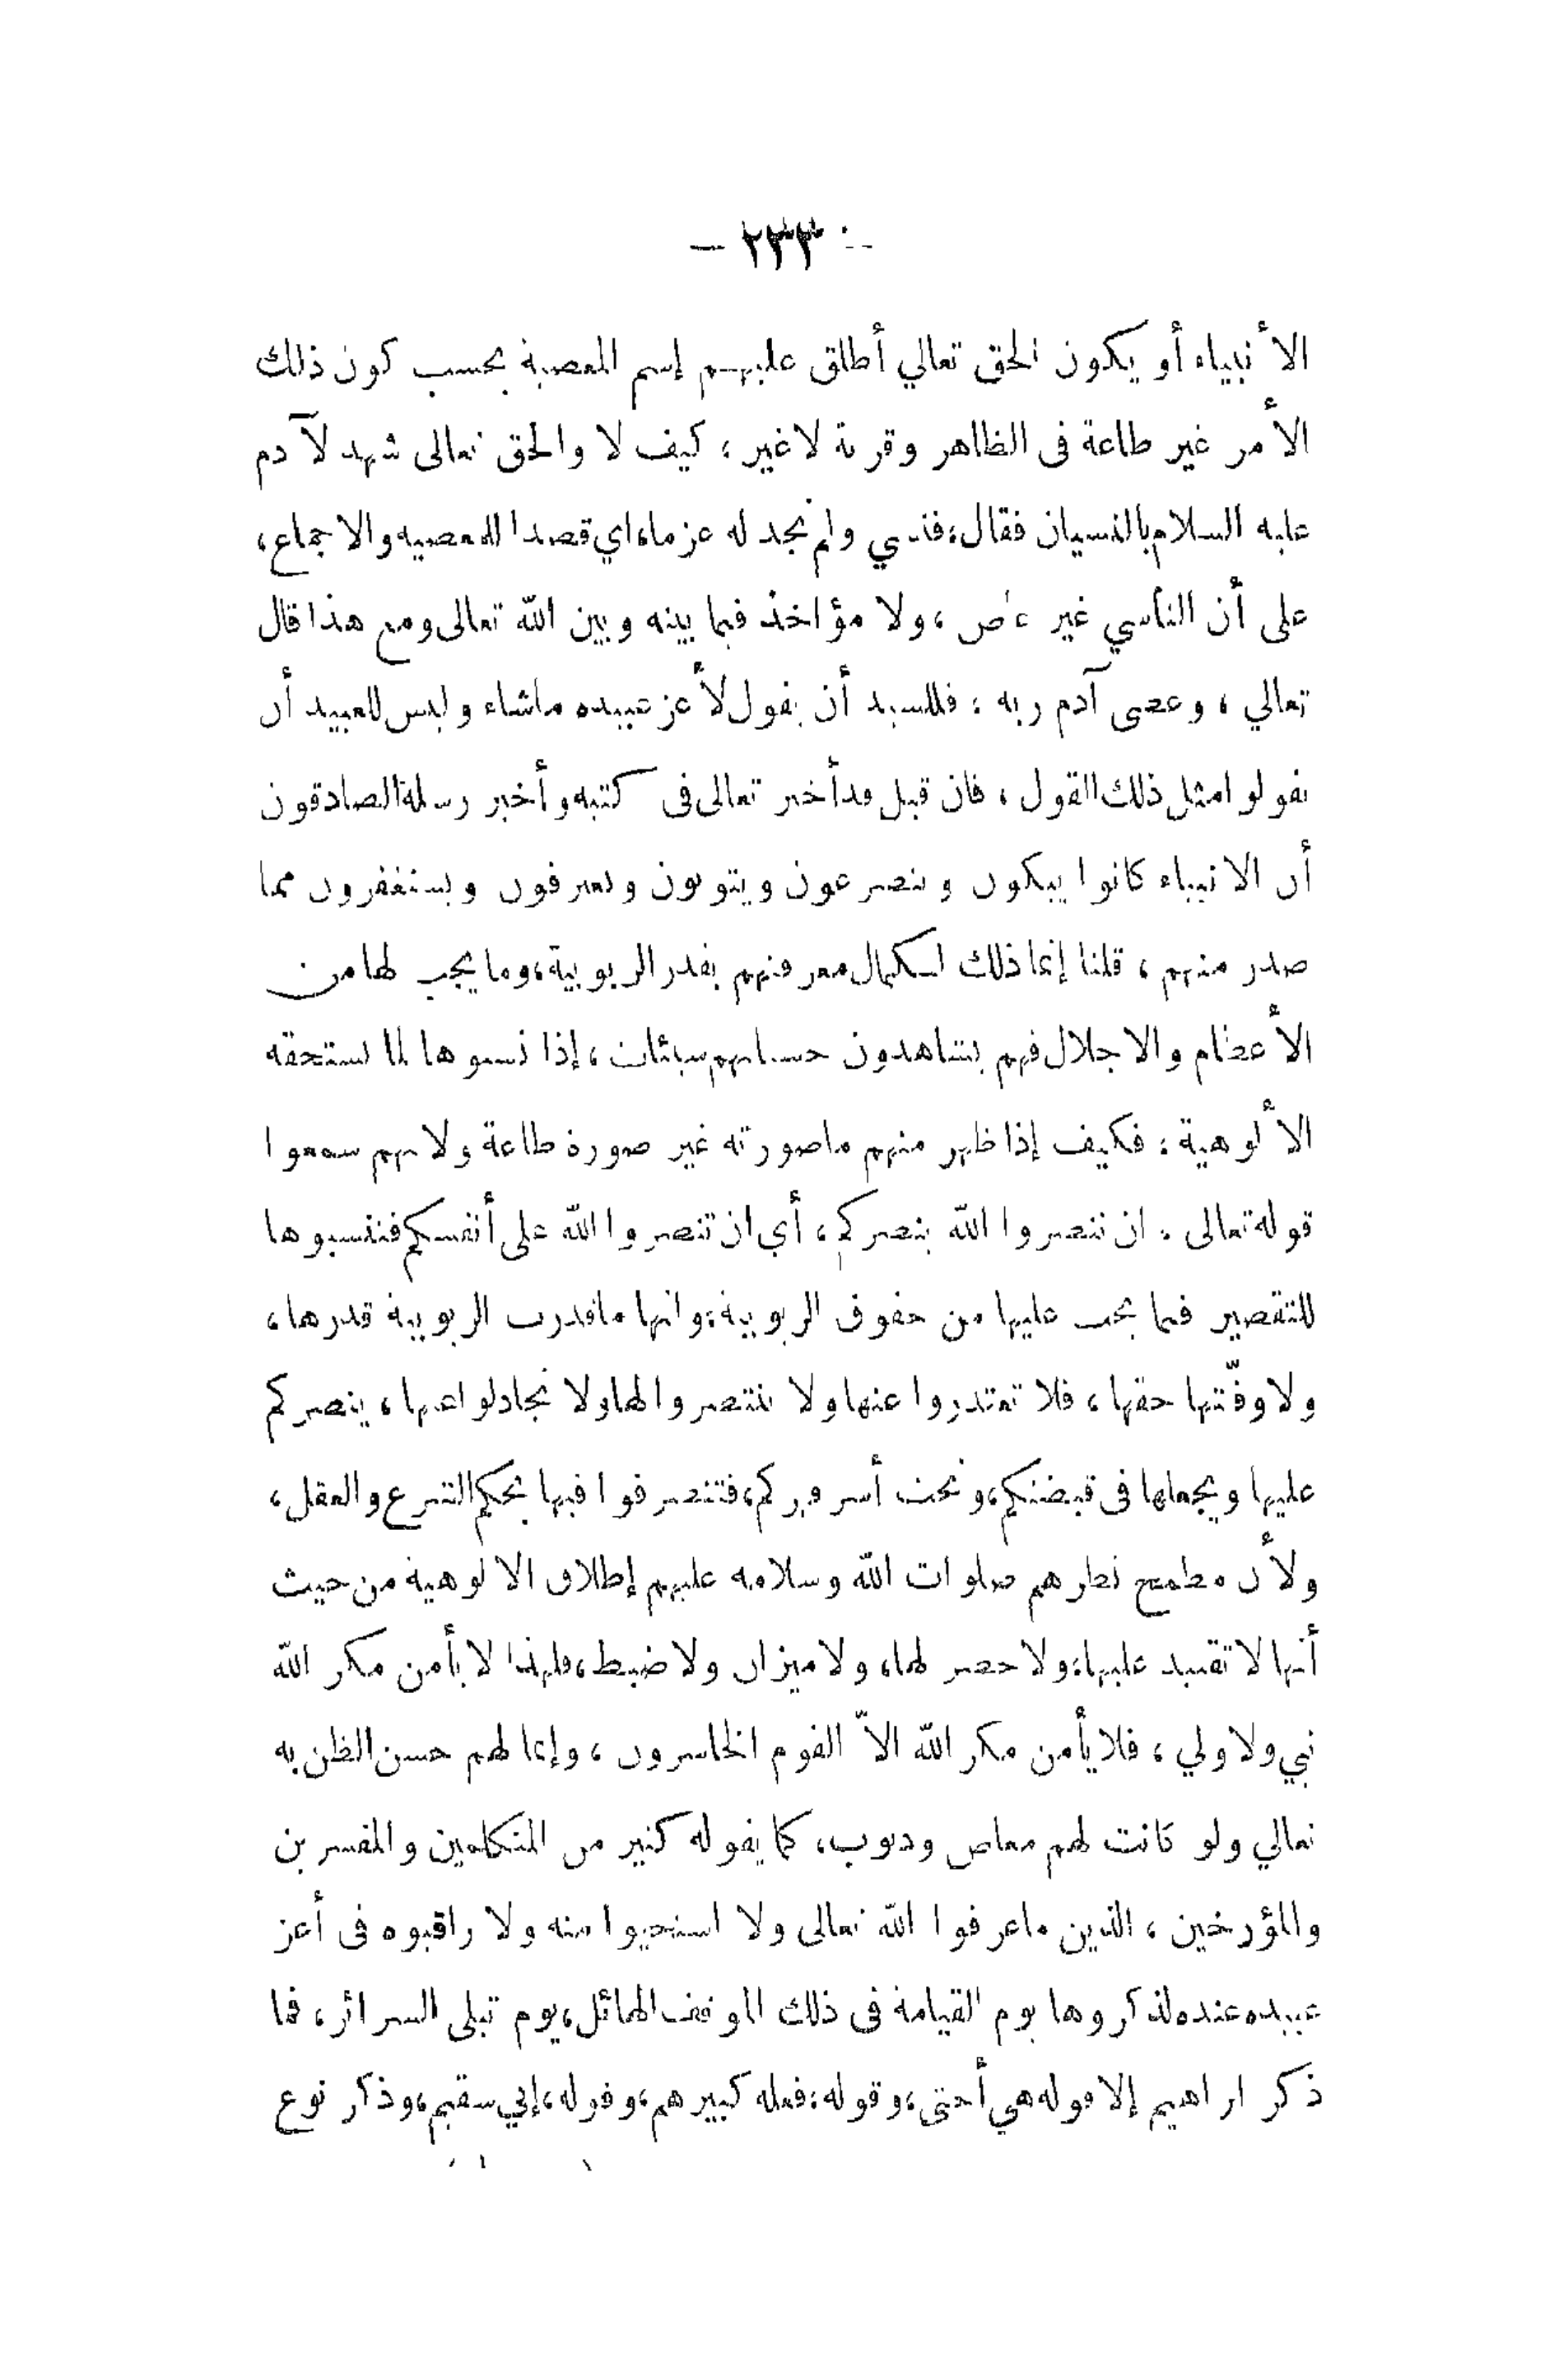 - ٢٣٣ -
الأنبياء أو يكون الحق تعالي أطلق عليهم إسم المعصية بحسب كون ذلك
الأمر غير طاعة فى الظاهر وقربة لاغير ، كيف لا والحق تعالى شهد لآدم
عليه السلام بالنسيان فقال ، فنسي ولم نجد له عزما ، اي قصدا للمعصيه والاجماع ،
على أن الناسي غير عاص ، ولا مؤاخذ فيما بينه وبين الله تعالى ومع هذا قال
تعالي ، وعصى آدم ربه ؛ فللسيد أن يقول لأعز عبيده ماشاء وليس للعبيد أن
يقولوا مثل ذلك القول ، فان قيل قد أخبر تعالى فى كتبه وأخبر رسله الصادقون
أن الانبياء كانوا يبكون ويتضرعون ويتوبون ويعترفون ويستغفرون مما
صدر منهم ، قلنا إنما ذلك لكمال معرفتهم بقدر الربوبية ، وما يجب لها من
الأعظام والاجلال فهم يشاهدون حسناتهم سيئات ، إذا نسبوها لما تستحقه
الألوهية ؛ فكيف إذا ظهر منهم ماصورته غير صورة طاعة ولانهم سمعوا
قوله تعالى ، ان تنصروا الله ينصركم ، أي ان تنصروا الله على أنفسكم فتنسبوها
للتقصير فيما يجب عليها من حقوق الربوبية ، وانها ماقدرت الربوبية قدرها ،
ولا وفّتها حقها ، فلا تعتذروا عنها ولا تنتصروا لها ولا تجادلوا عنها ، ينصركم
عليها ويجعلها فى قبضتكم ، وتحت أسركم ، فتتصرفوا فيها بحكم الشرع والعقل ،
ولأن مطمح نظرهم صلوات الله وسلامه عليهم إطلاق الالوهية من حيث
أنها لا تقييد عليها ، ولا حصر لها ، ولا ميزان ولا ضبط ، فلهذا لا يأمن مكر الله
نبي ولا ولي ، فلا يأمن مكر الله الاّ القوم الخاسرون ، وإنما لهم حسن الظن به
تعالي ولو كانت لهم معاص وذنوب ، كما يقوله كثير من المتكلمين والمفسرين
والمؤرخين ، الذين ماعرفوا الله تعالى ولا استحيوا منه ولا راقبوه فى أعز
عبيده عنده لذكروها يوم القيامة فى ذلك الموقف الهائل ، يوم تبلى السرائر ، فما
ذكر ابراهيم إلا قوله هي أختي ، وقوله ، فعله كبيرهم ، وقوله ، إني سقيم ، وذكر نوع